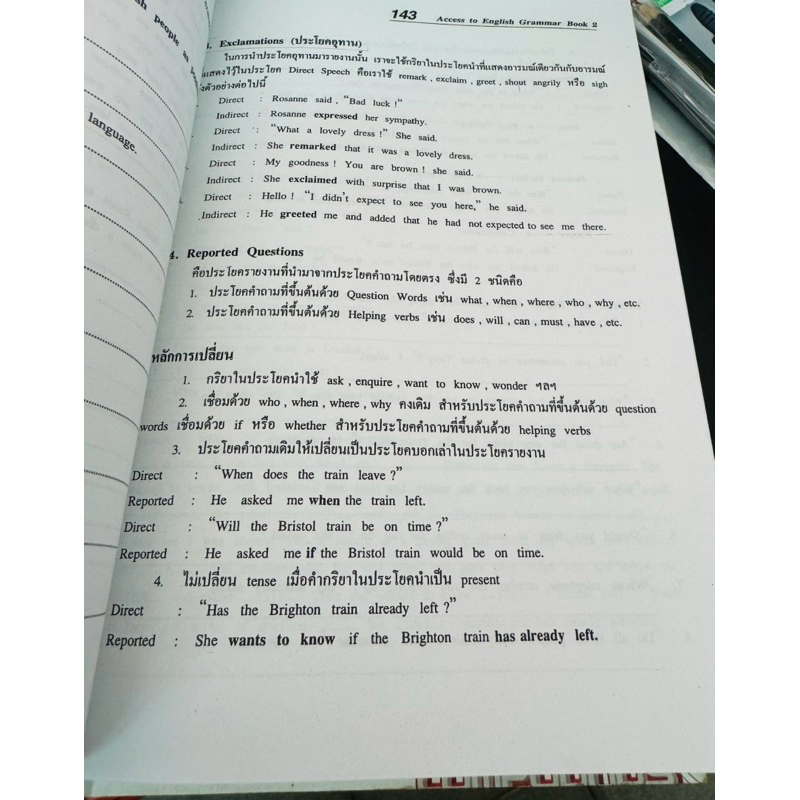 143 Access to English Grammar Book 2
3. Exclamations (ประโยคอุทาน)
ในการนำประโยคอุทานมารายงานนั้น เราจะใช้กริยาในประโยคนำที่แสดงอารมณ์เดียวกันกับอารมณ์
แสดงไว้ในประโยค Direct Speech คือเราใช้ remark , exclaim , greet , shout angrily หรือ sigh
ตัวอย่างต่อไปนี้
Direct : Rosanne said , "Bad luck !"
Indirect : Rosanne expressed her sympathy.
Direct : "What a lovely dress !" She said.
Indirect : She remarked that it was a lovely dress.
Direct : My goodness ! You are brown ! she said.
Indirect : She exclaimed with surprise that I was brown.
Direct : Hello ! "I didn't expect to see you here," he said.
Indirect : He greeted me and added that he had not expected to see me there.
4. Reported Questions
คือประโยครายงานที่นำมาจากประโยคคำถามโดยตรง ซึ่งมี 2 ชนิดคือ
1. ประโยคคำถามที่ขึ้นต้นด้วย Question Words เช่น what , when , where , who , why , etc.
2. ประโยคคำถามที่ขึ้นต้นด้วย Helping verbs เช่น does , will , can , must , have , etc.
หลักการเปลี่ยน
1. กริยาในประโยคนำใช้ ask , enquire , want to know , wonder ฯลฯ
2. เชื่อมด้วย who , when , where , why คงเดิม สำหรับประโยคคำถามที่ขึ้นต้นด้วย question
words เชื่อมด้วย if หรือ whether สำหรับประโยคคำถามที่ขึ้นต้นด้วย helping verbs
3. ประโยคคำถามเดิมให้เปลี่ยนเป็นประโยคบอกเล่าในประโยครายงาน
Direct : "When does the train leave ?"
Reported : He asked me when the train left.
Direct : "Will the Bristol train be on time ?"
Reported : He asked me if the Bristol train would be on time.
4. ไม่เปลี่ยน tense เมื่อคำกริยาในประโยคนำเป็น present
Direct : "Has the Brighton train already left ?"
Reported : She wants to know if the Brighton train has already left.
people as
language.